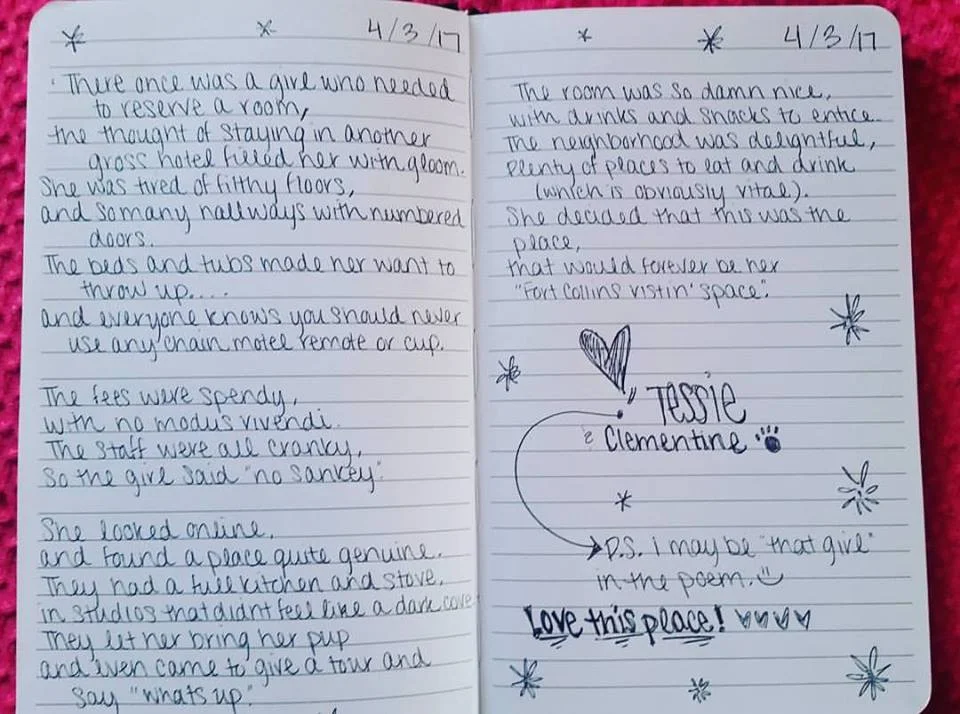 4/3/17
There once was a girl who needed
to reserve a room,
the thought of staying in another
gross hotel filled her with gloom.
She was tired of filthy floors,
and so many hallways with numbered
doors.
The beds and tubs made her want to
throw up....
and everyone knows you should never
use any chain motel remote or cup.
The fees were spendy,
with no modus vivendi.
The staff were all cranky,
So the girl said "no sankey".
She looked online,
and found a place quite genuine.
They had a full kitchen and stove,
in studios that didnt feel like a dark cove
They let her bring her pup
and even came to give a tour and
say "whats up."
4/3/17
The room was so damn nice,
with drinks and snacks to entice.
The neighborhood was delightful,
plenty of places to eat and drink
(which is obviously vital).
She decided that this was the
place,
that would forever be her
"Fort Collins vistin' space".
Tessie
& Clementine
P.S. i may be "that girl"
in the poem.
Love this place!